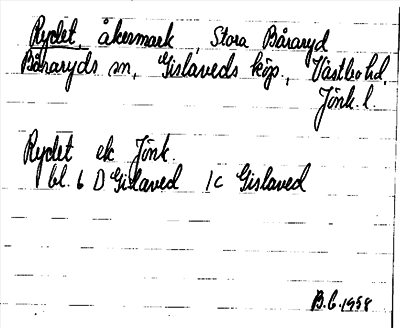 Rydet, åkermark, Stora Båraryd
Båraryds sn, Gislaveds köp., Västbo hd,
Jönk. l.
Rydet ek Jönk.
bl. 6 D Gislaved 1c Gislaved
B.G. 1958